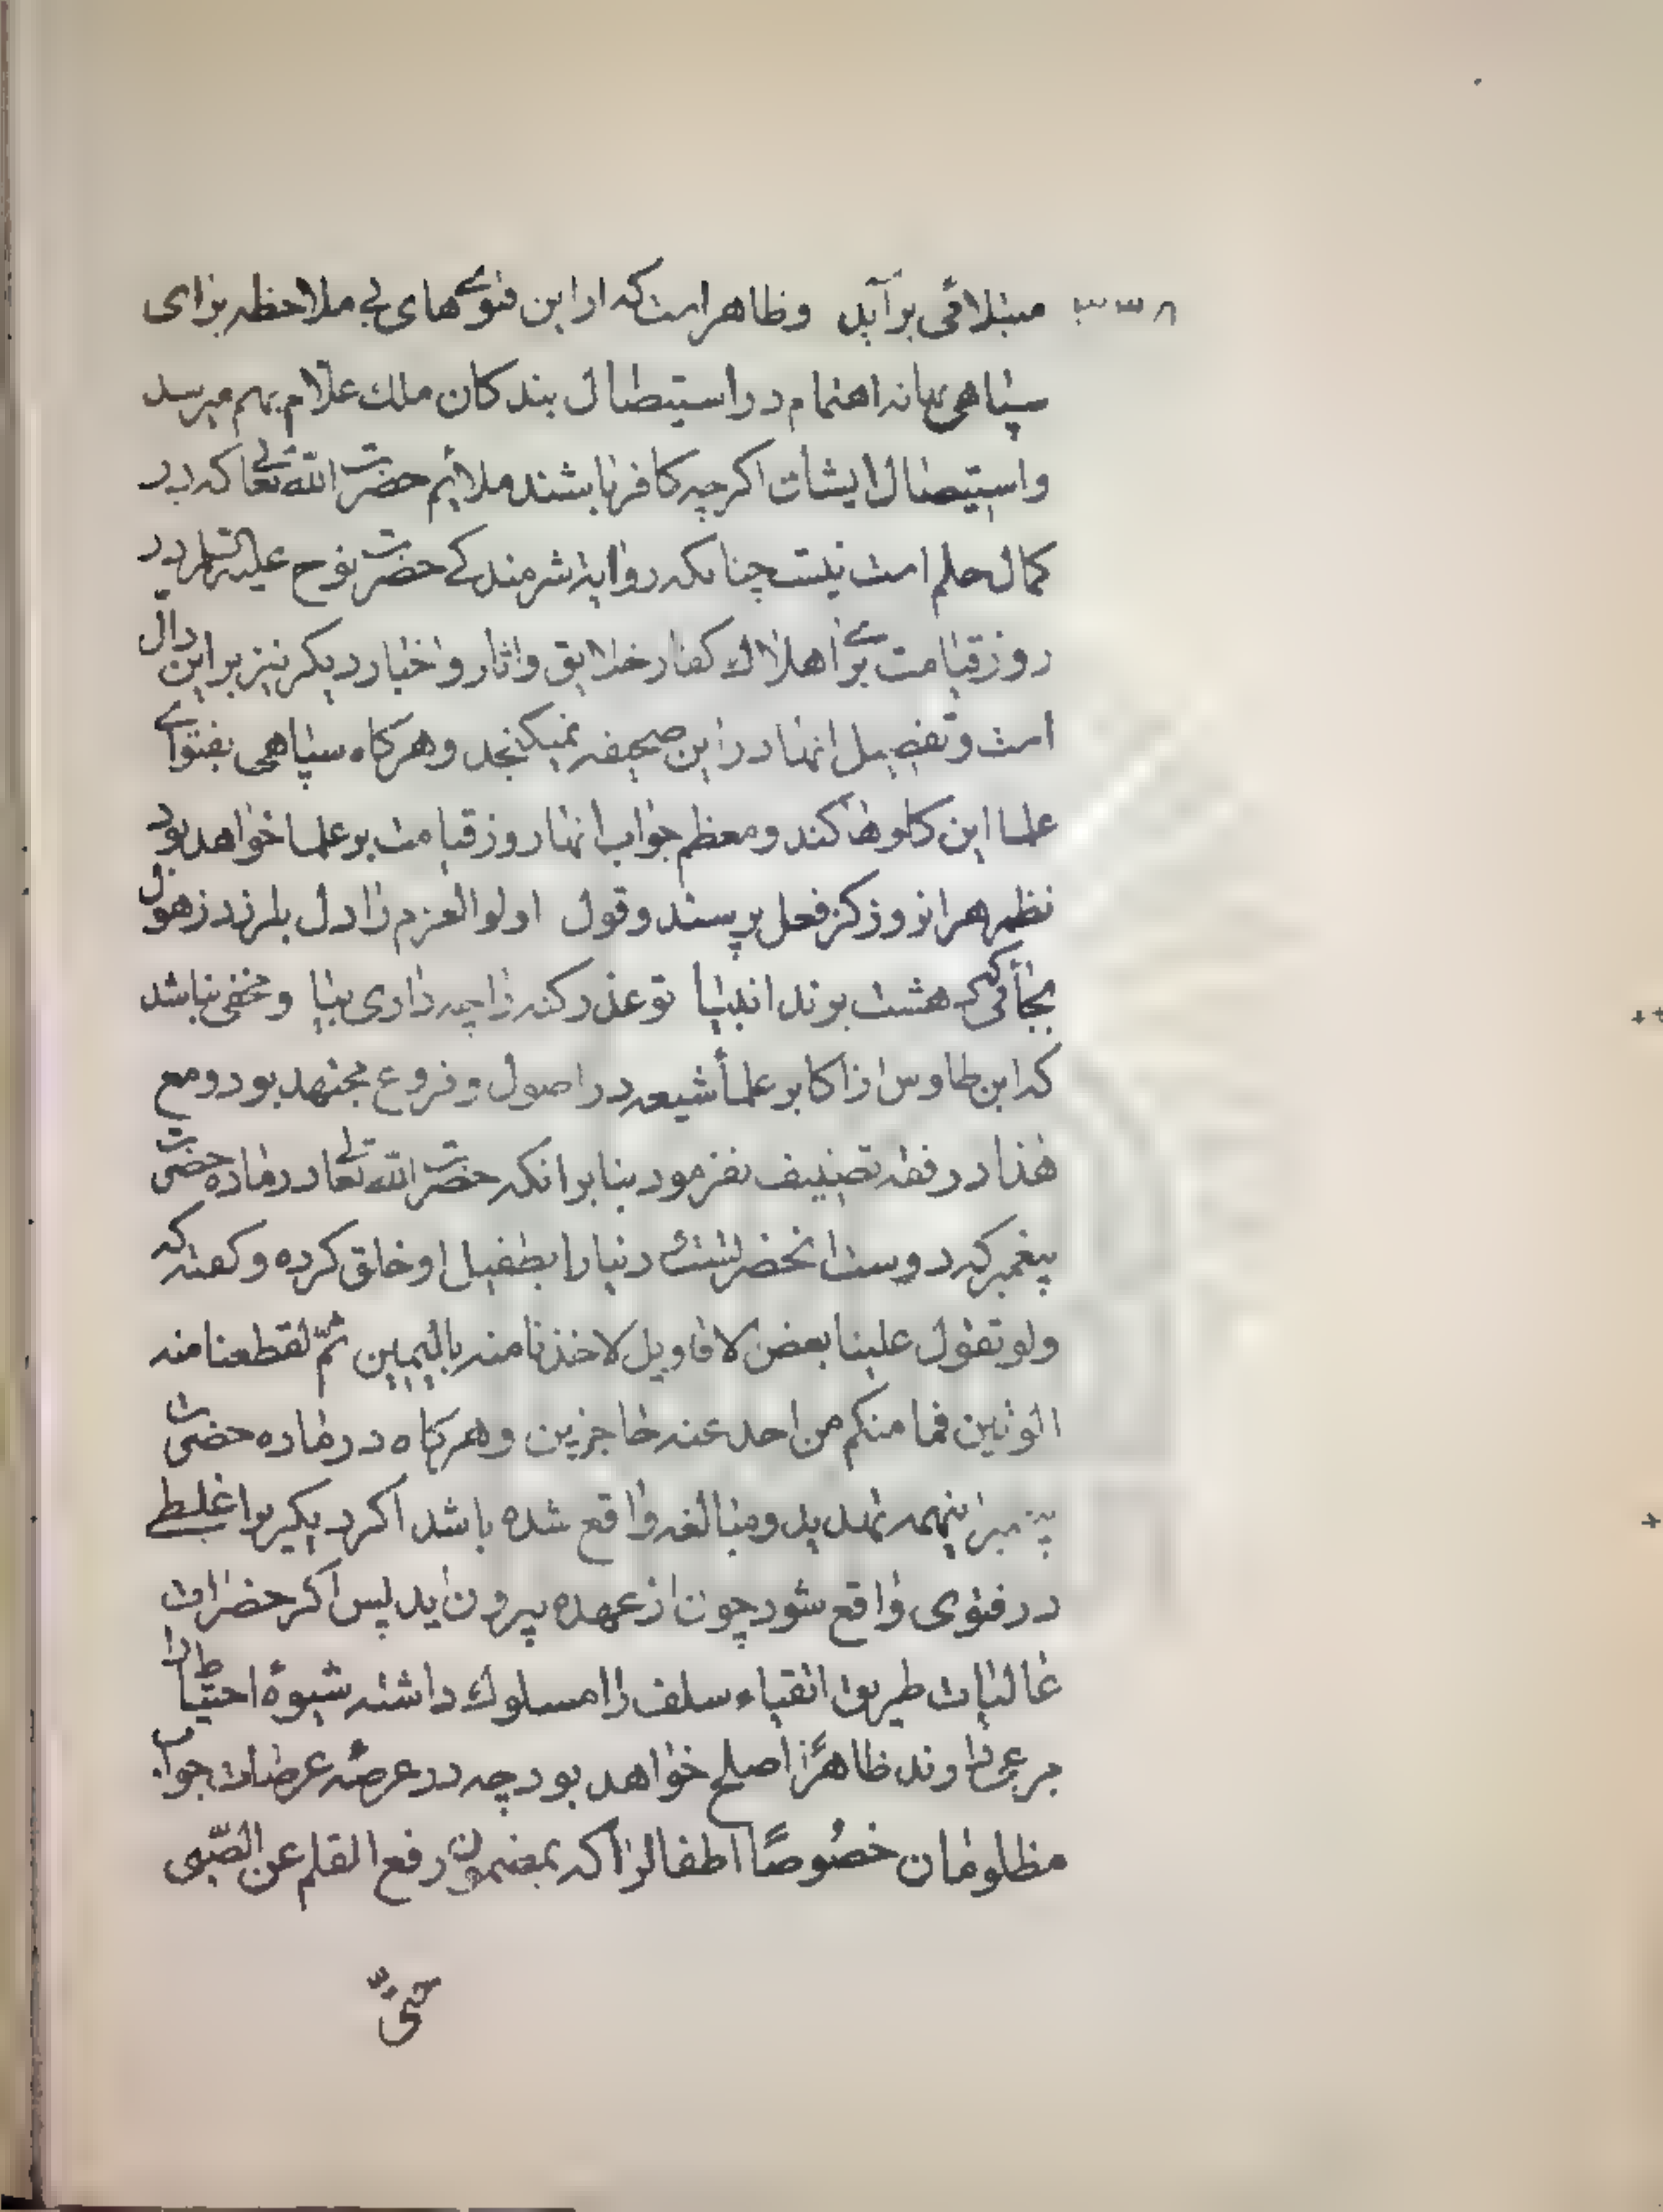 ۳۳۸ مبتلائی برآید وظاهراست که ازاین فتوی های بی ملاحظه برای
سپاهی بهانه اهتمام در استیصال بندگان ملک علام بهم میرسد
واستیصال ایشان اکرچه کافر باشند ملائم حضرت الله تعالی که در
کمال حلم است نیست چنانکه روایة شرمندکی حضرت نوح علیه السلام در
روز قیامت برای اهلاک کفار خلایق واثار واخبار دیکر نیز براین دال
است وتفصیل انها دراین صحیفه نمیکنجد وهرکاه سپاهی بفتوای
علما این کاوها کند ومعظم جواب انها روز قیامت بر علما خواهد بود
نظم هر انروز کز فعل پرسند وقول اولوالعزم را دل بلرزد زهول
بجائی که دهشت برند انبیا تو عذر کنه را چه داری بیا ومخفی نباشد
که ابن طاوس از اکابر علمأ شیعه در اصول وفروع مجتهد بود ومع
هذا در فقه تصنیف نفرمود بنابر انکه حضرت الله تعالی درماده حضرت
پیغمبر که دوست انحضرتست دنیا را بطفیل او خلق کرده وکفته که
ولو تقول علینا بعض الاقاویل لاخذنا منه بالیمین ثمّ لقطعنا منه
الوتین فما منکم من احد عنه حاجزین وهرکاه درماده حضرت
پیغمبر اینهمه تهدید ومبالغه واقع شده باشد اکر دیکریرا غلطی
در فتوی واقع شود چون از عهده بیرون اید پس اکر حضرات
عالیات طریق اتقیاء سلف را مسلوک داشته شیوهٔ احتیاط را
مرعی دارند ظاهرًا اصلح خواهد بود چه در عرصهٔ عرصات جواب
مظلومان خصُوصًا اطفالرا که بمضمون رفع القلم عن الصّبی
حتی